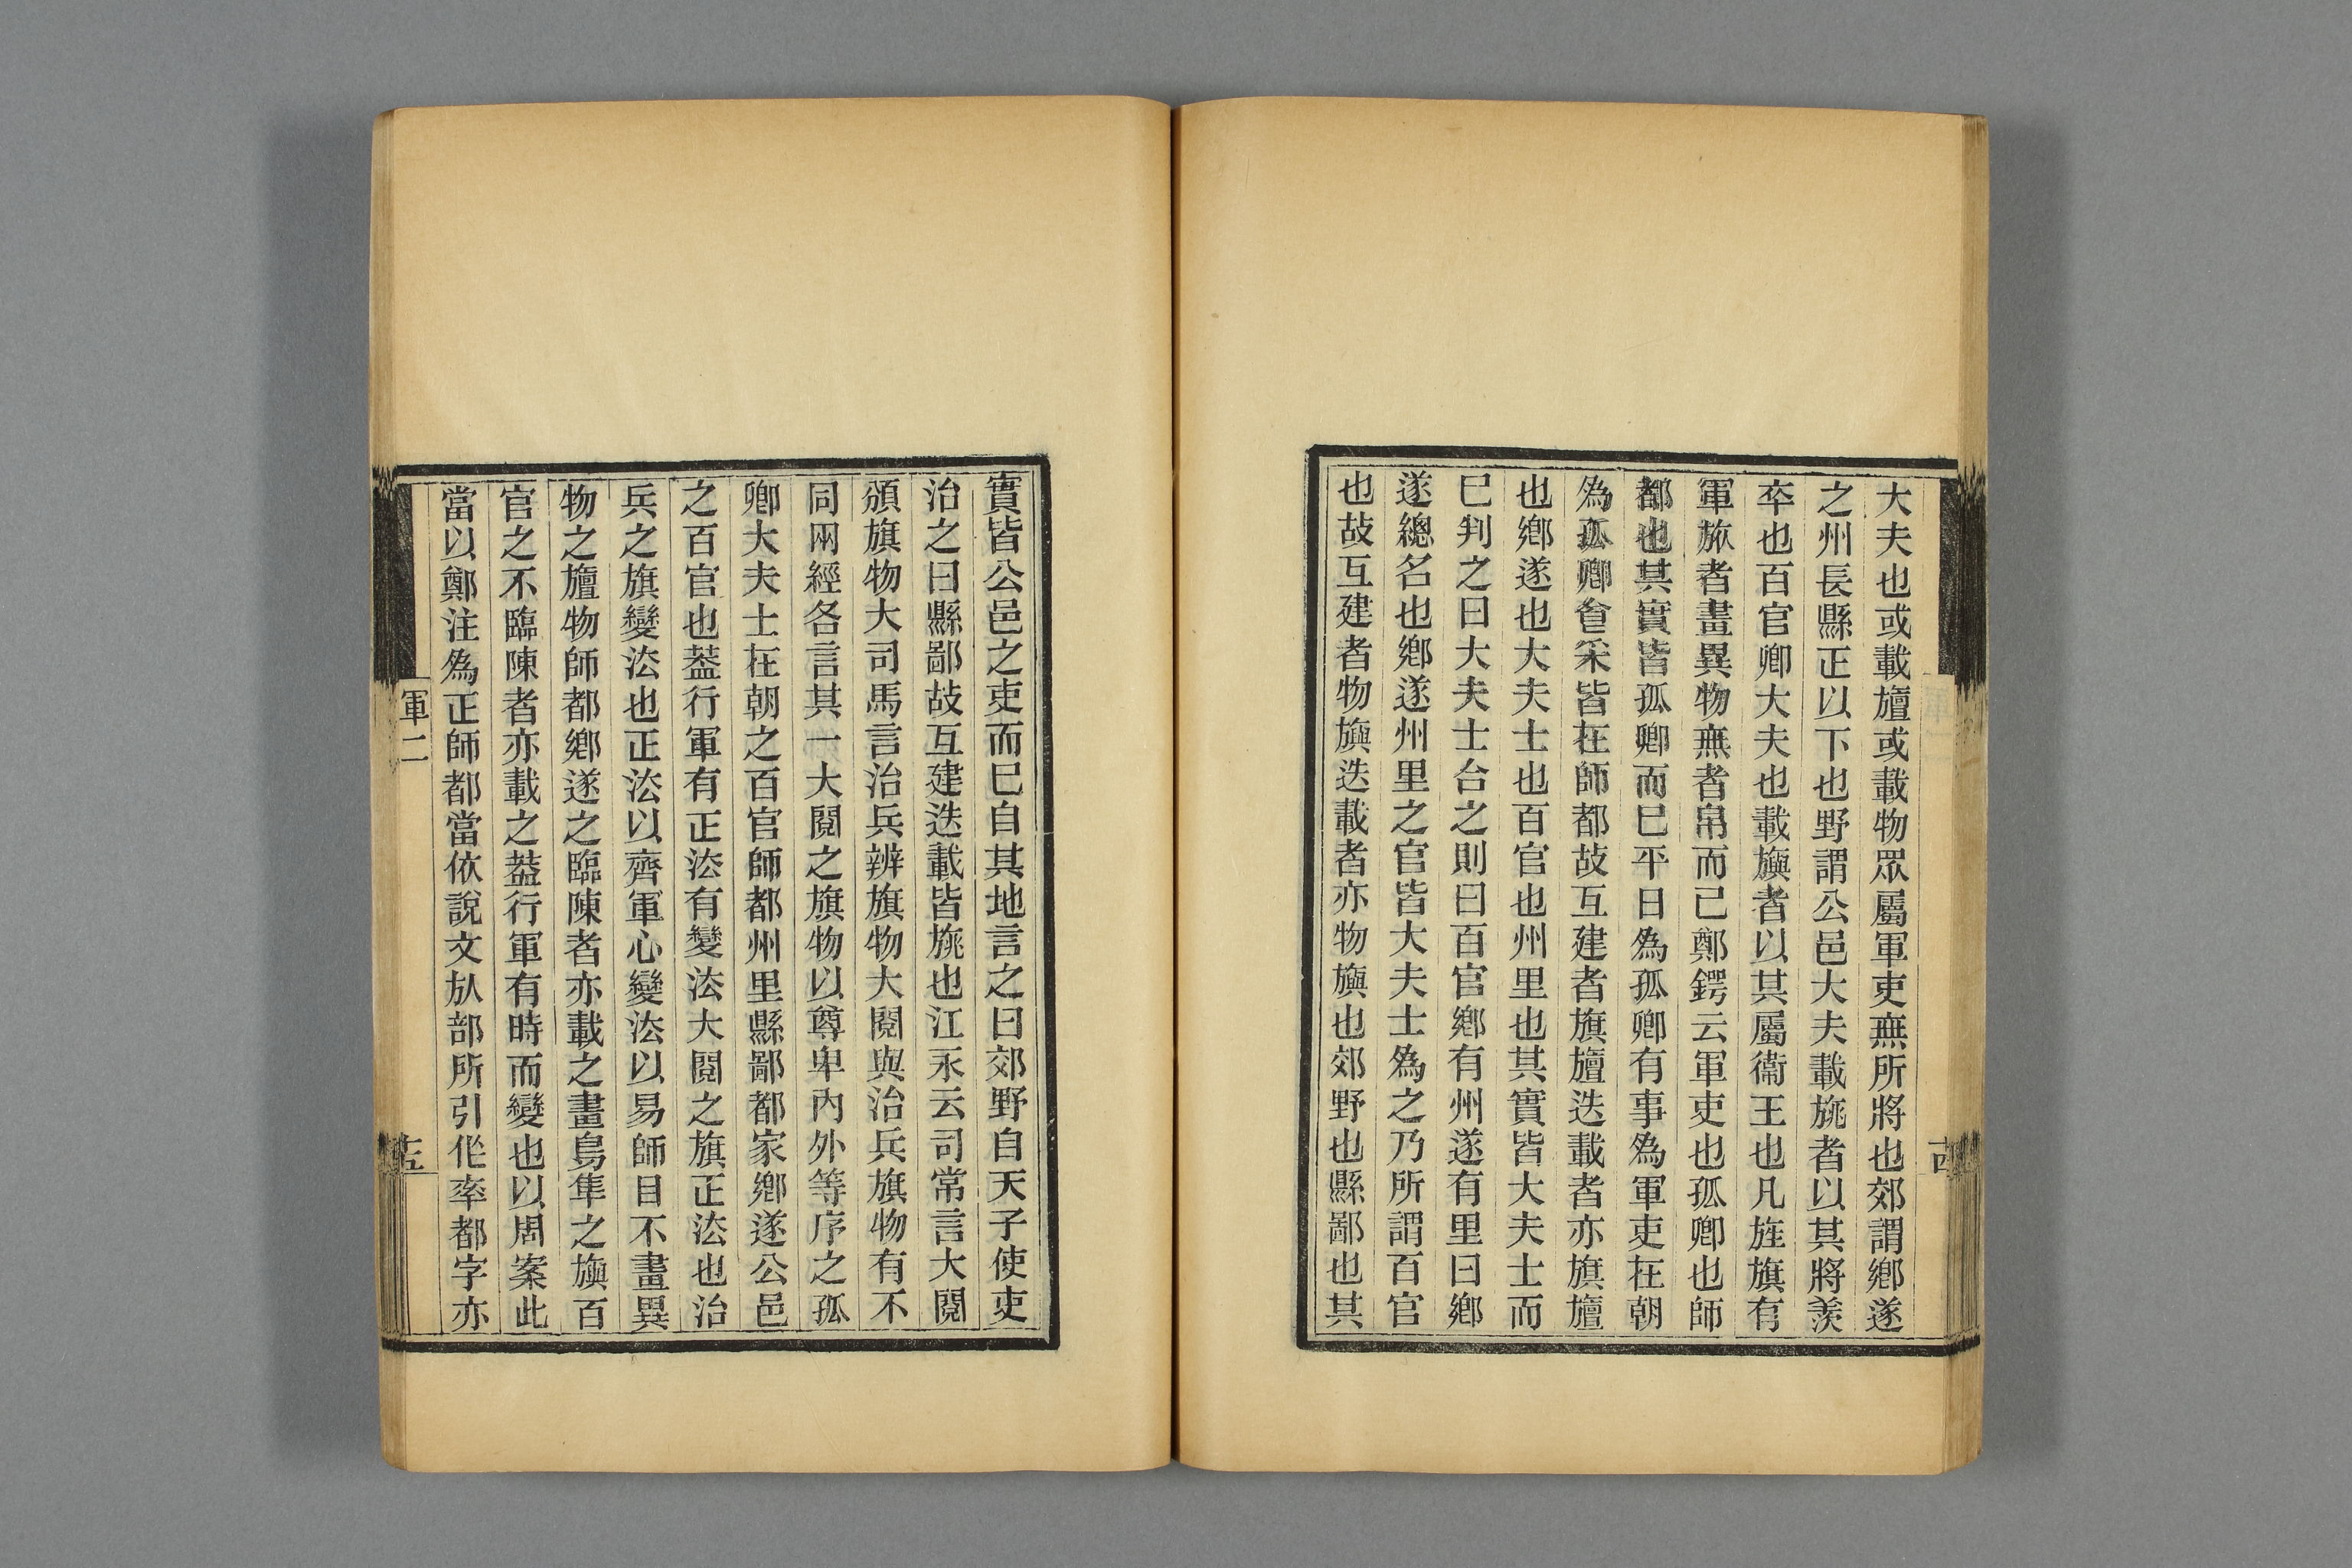 大夫也或載旜或載物眾屬軍吏無所將也郊謂鄉遂
之州長縣正以下也野謂公邑大夫載旐者以其將羨
卒也百官卿大夫也載旟者以其屬衞王也凡旌旗有
軍旅者畫異物無者帛而已鄭鍔云軍吏也孤卿也師
都也其實皆孤卿而巳平日為孤卿有事為軍吏在朝
為孤卿食采皆在師都故互建者旗旜迭載者亦旗旜
也鄉遂也大夫士也百官也州里也其實皆大夫士而
巳判之曰大夫士合之則曰百官鄉有州遂有里曰鄉
遂總名也鄉遂州里之官皆大夫士為之乃所謂百官
也故互建者物旟迭載者亦物旟也郊野也縣鄙也其
十四
實皆公邑之吏而巳自其地言之曰郊野自天子使吏
治之曰縣鄙故互建迭載皆旐也江永云司常言大閱
頒旗物大司馬言治兵辨旗物大閱與治兵旗物有不
同兩經各言其一大閱之旗物以尊卑內外等序之孤
卿大夫士在朝之百官師都州里縣鄙都家鄉遂公邑
之百官也葢行軍有正法有變法大閱之旗正法也治
兵之旗變法也正法以齊軍心變法以易師目不畫異
物之旜物師都鄉遂之臨陳者亦載之畫鳥隼之旟百
官之不臨陳者亦載之葢行軍有時而變也以周案此
當以鄭注為正師都當依說文㫃部所引作率都字亦
軍二
十五